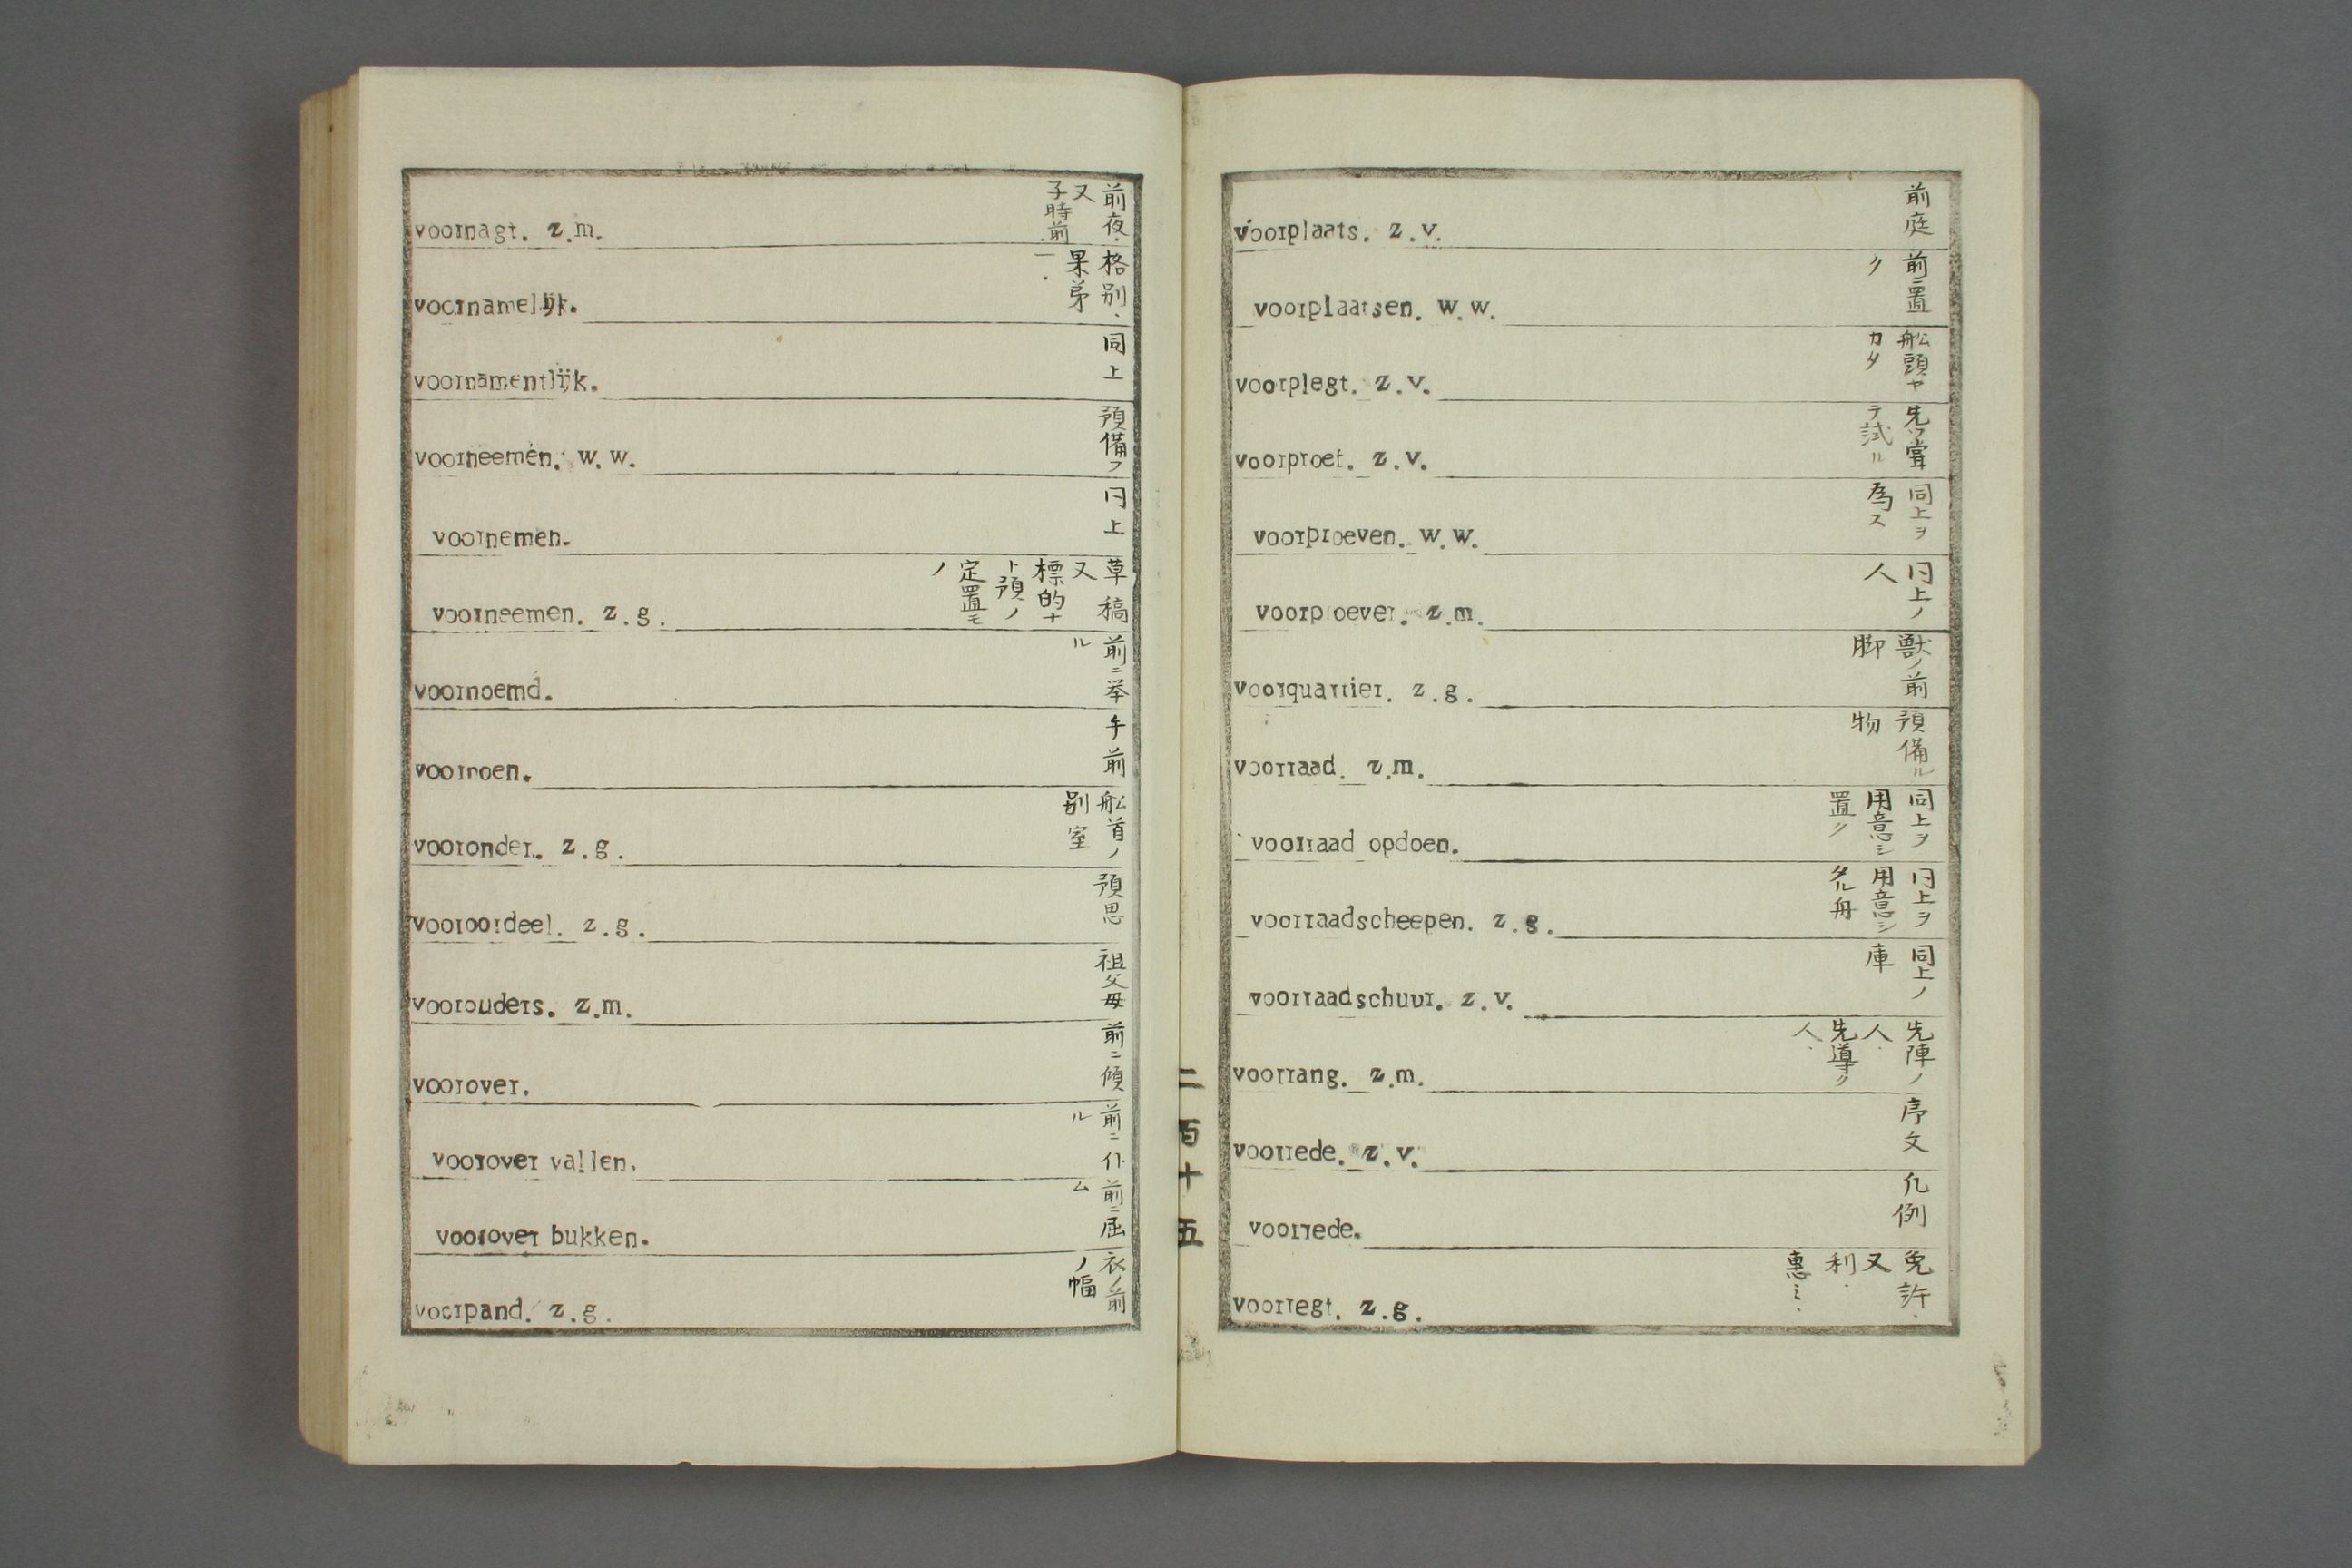 voornagt. z.m.
前夜.
又
子時前.
voornamelijk.
格别.
果㐧
一.
voornamentlijk.
同上
voorneemen. w.w.
預備フ
voornemen.
同上
voorneemen. z.g.
草稿
又
標的ナ
ト預ノ
定置モ
ノ
voornoemd.
前ニ举
ル
voornoen.
午前
vooronder. z.g.
舩首ノ
别室
vooroordeel. z.g.
預思
voorouders. z.m.
祖父母
voorover.
前ニ傾
voorover vallen.
前ニ仆
ル
voorover bukken.
前ニ屈
ム
voorpand. z.g.
衣ノ前
ノ幅
二百十五
voorplaats. z.v.
前庭
voorplaatsen. w.w.
前ニ置
ク
voorplegt. z.v.
舩頭ヤ
カタ
voorproef. z.v.
先ツ嘗
テ試ル
voorproeven. w.w.
同上ヲ
為ス
voorproever. z.m.
同上ノ
人
voorquartier. z.g.
獸ノ前
脚
voorraad. z.m.
預備ル
物
voorraad opdoen.
同上ヲ
用意シ
置ク
voorraadscheepen. z.g.
同上ヲ
用意シ
タル舟
voorraadschuur. z.v.
同上ノ
庫
voorrang. z.m.
先陣ノ
人.
先導ク
人.
voorrede. z.v.
序文
voorrede.
凡例
voorregt. z.g.
免許.
又
利.
惠ミ.